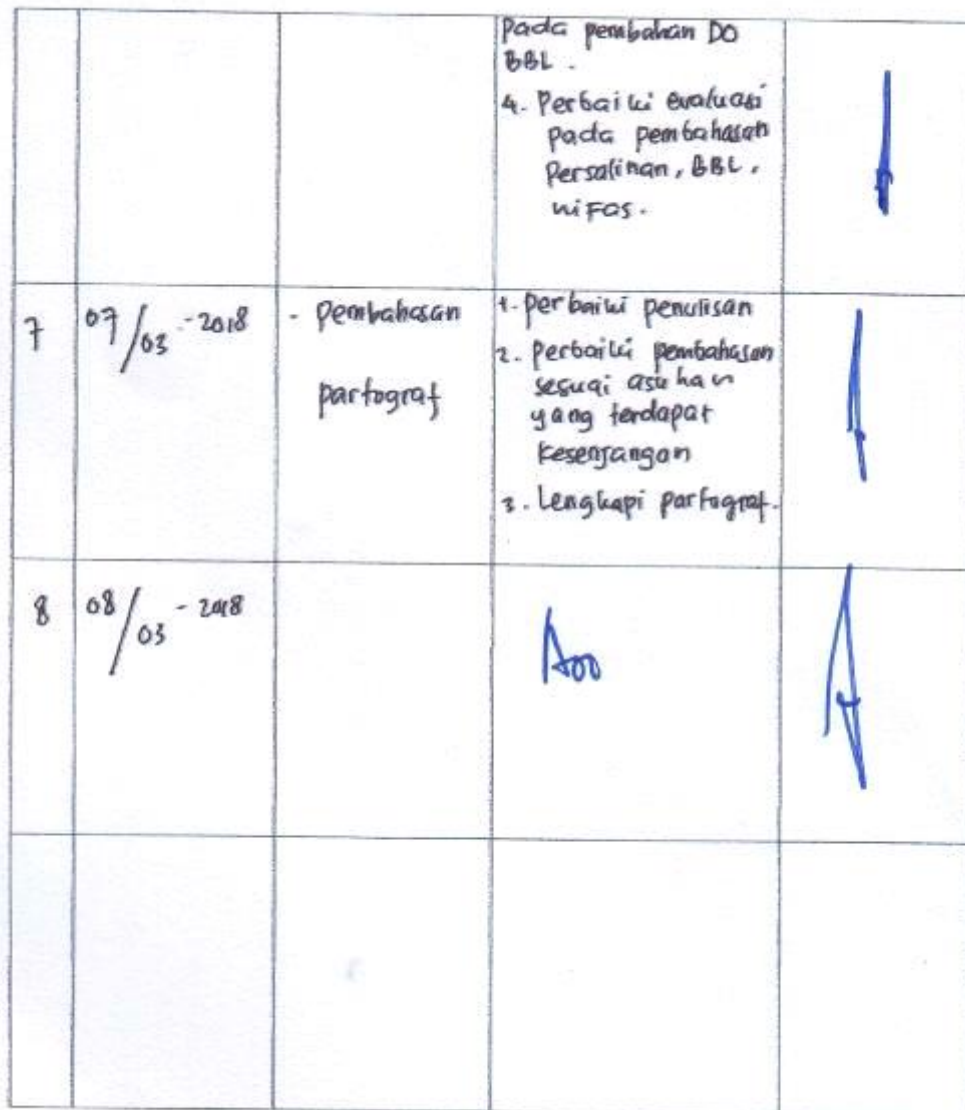 Pada pembahan DO
BBL.
4. Perbaiki evaluasi
pada pembahasan
Persalinan, BBL,
nifas.
7 07/03-2018 - Pembahasan
partograf
1. perbaiki penulisan
2. perbaiki pembahasan
sesuai asuhan
yang terdapat
kesenjangan
3. Lengkapi partograf.
8 08/03-2018